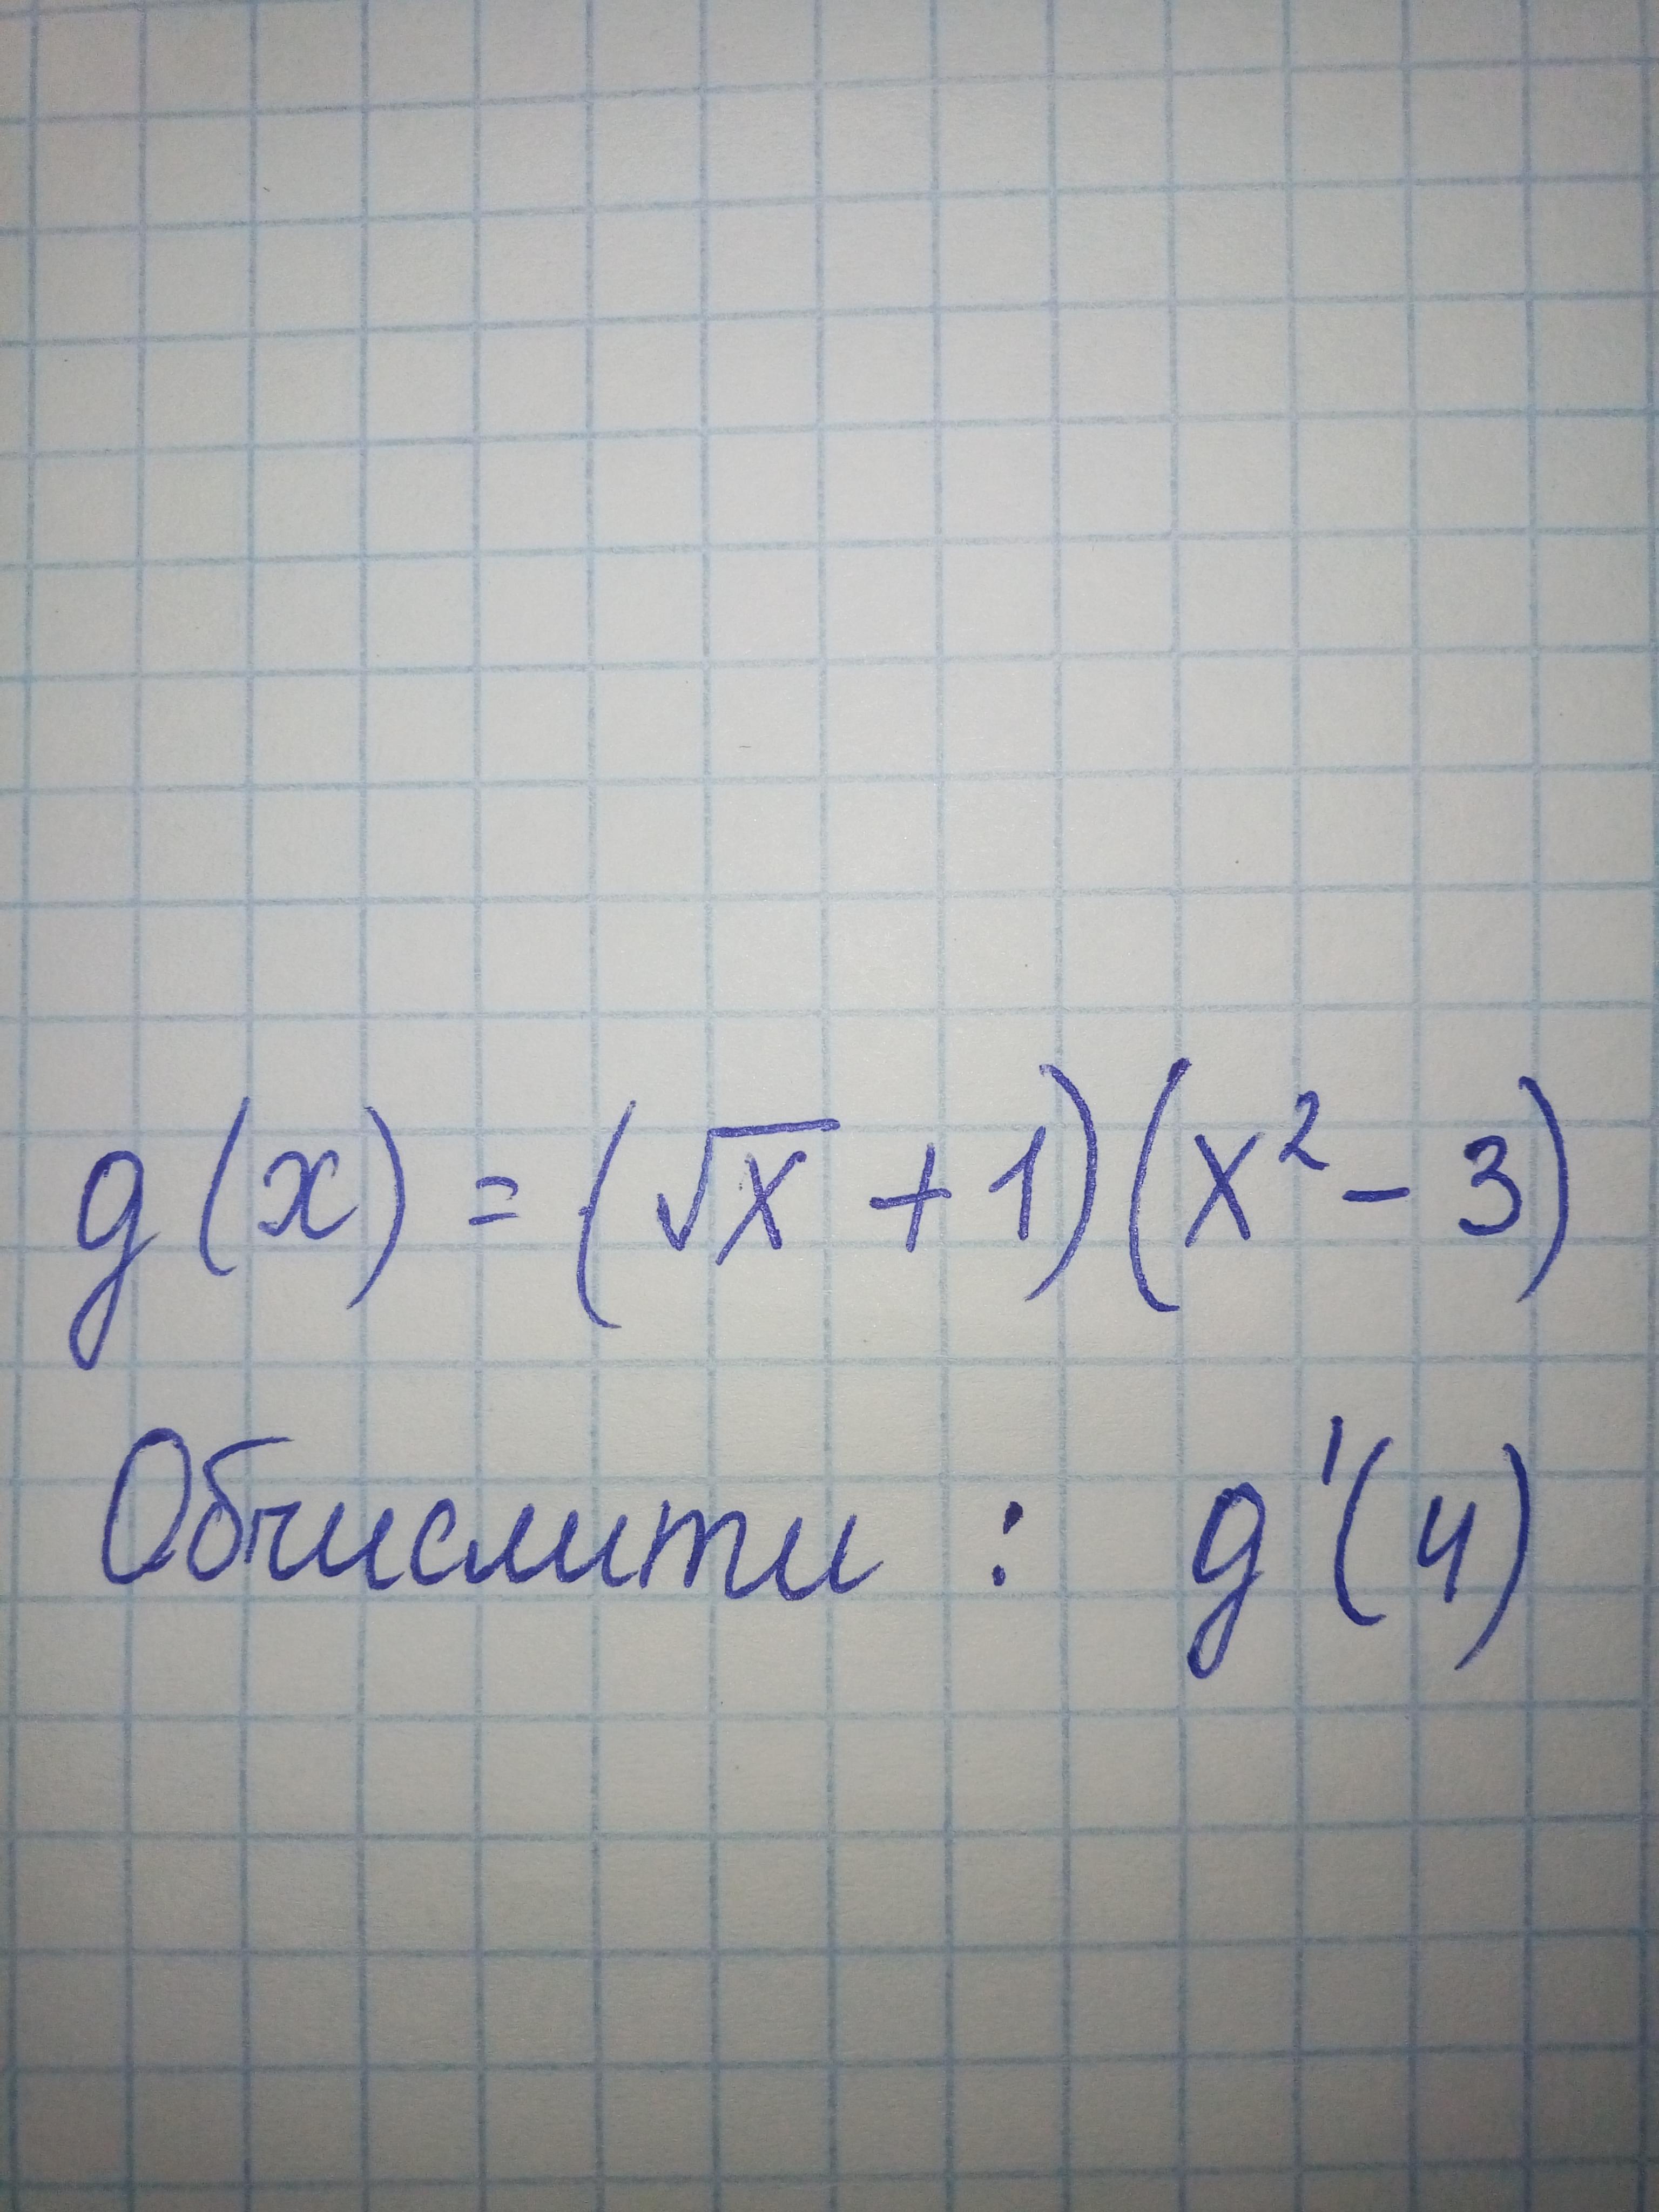 g(x) = (√x + 1)(x² - 3)
Обчислити : g'(4)